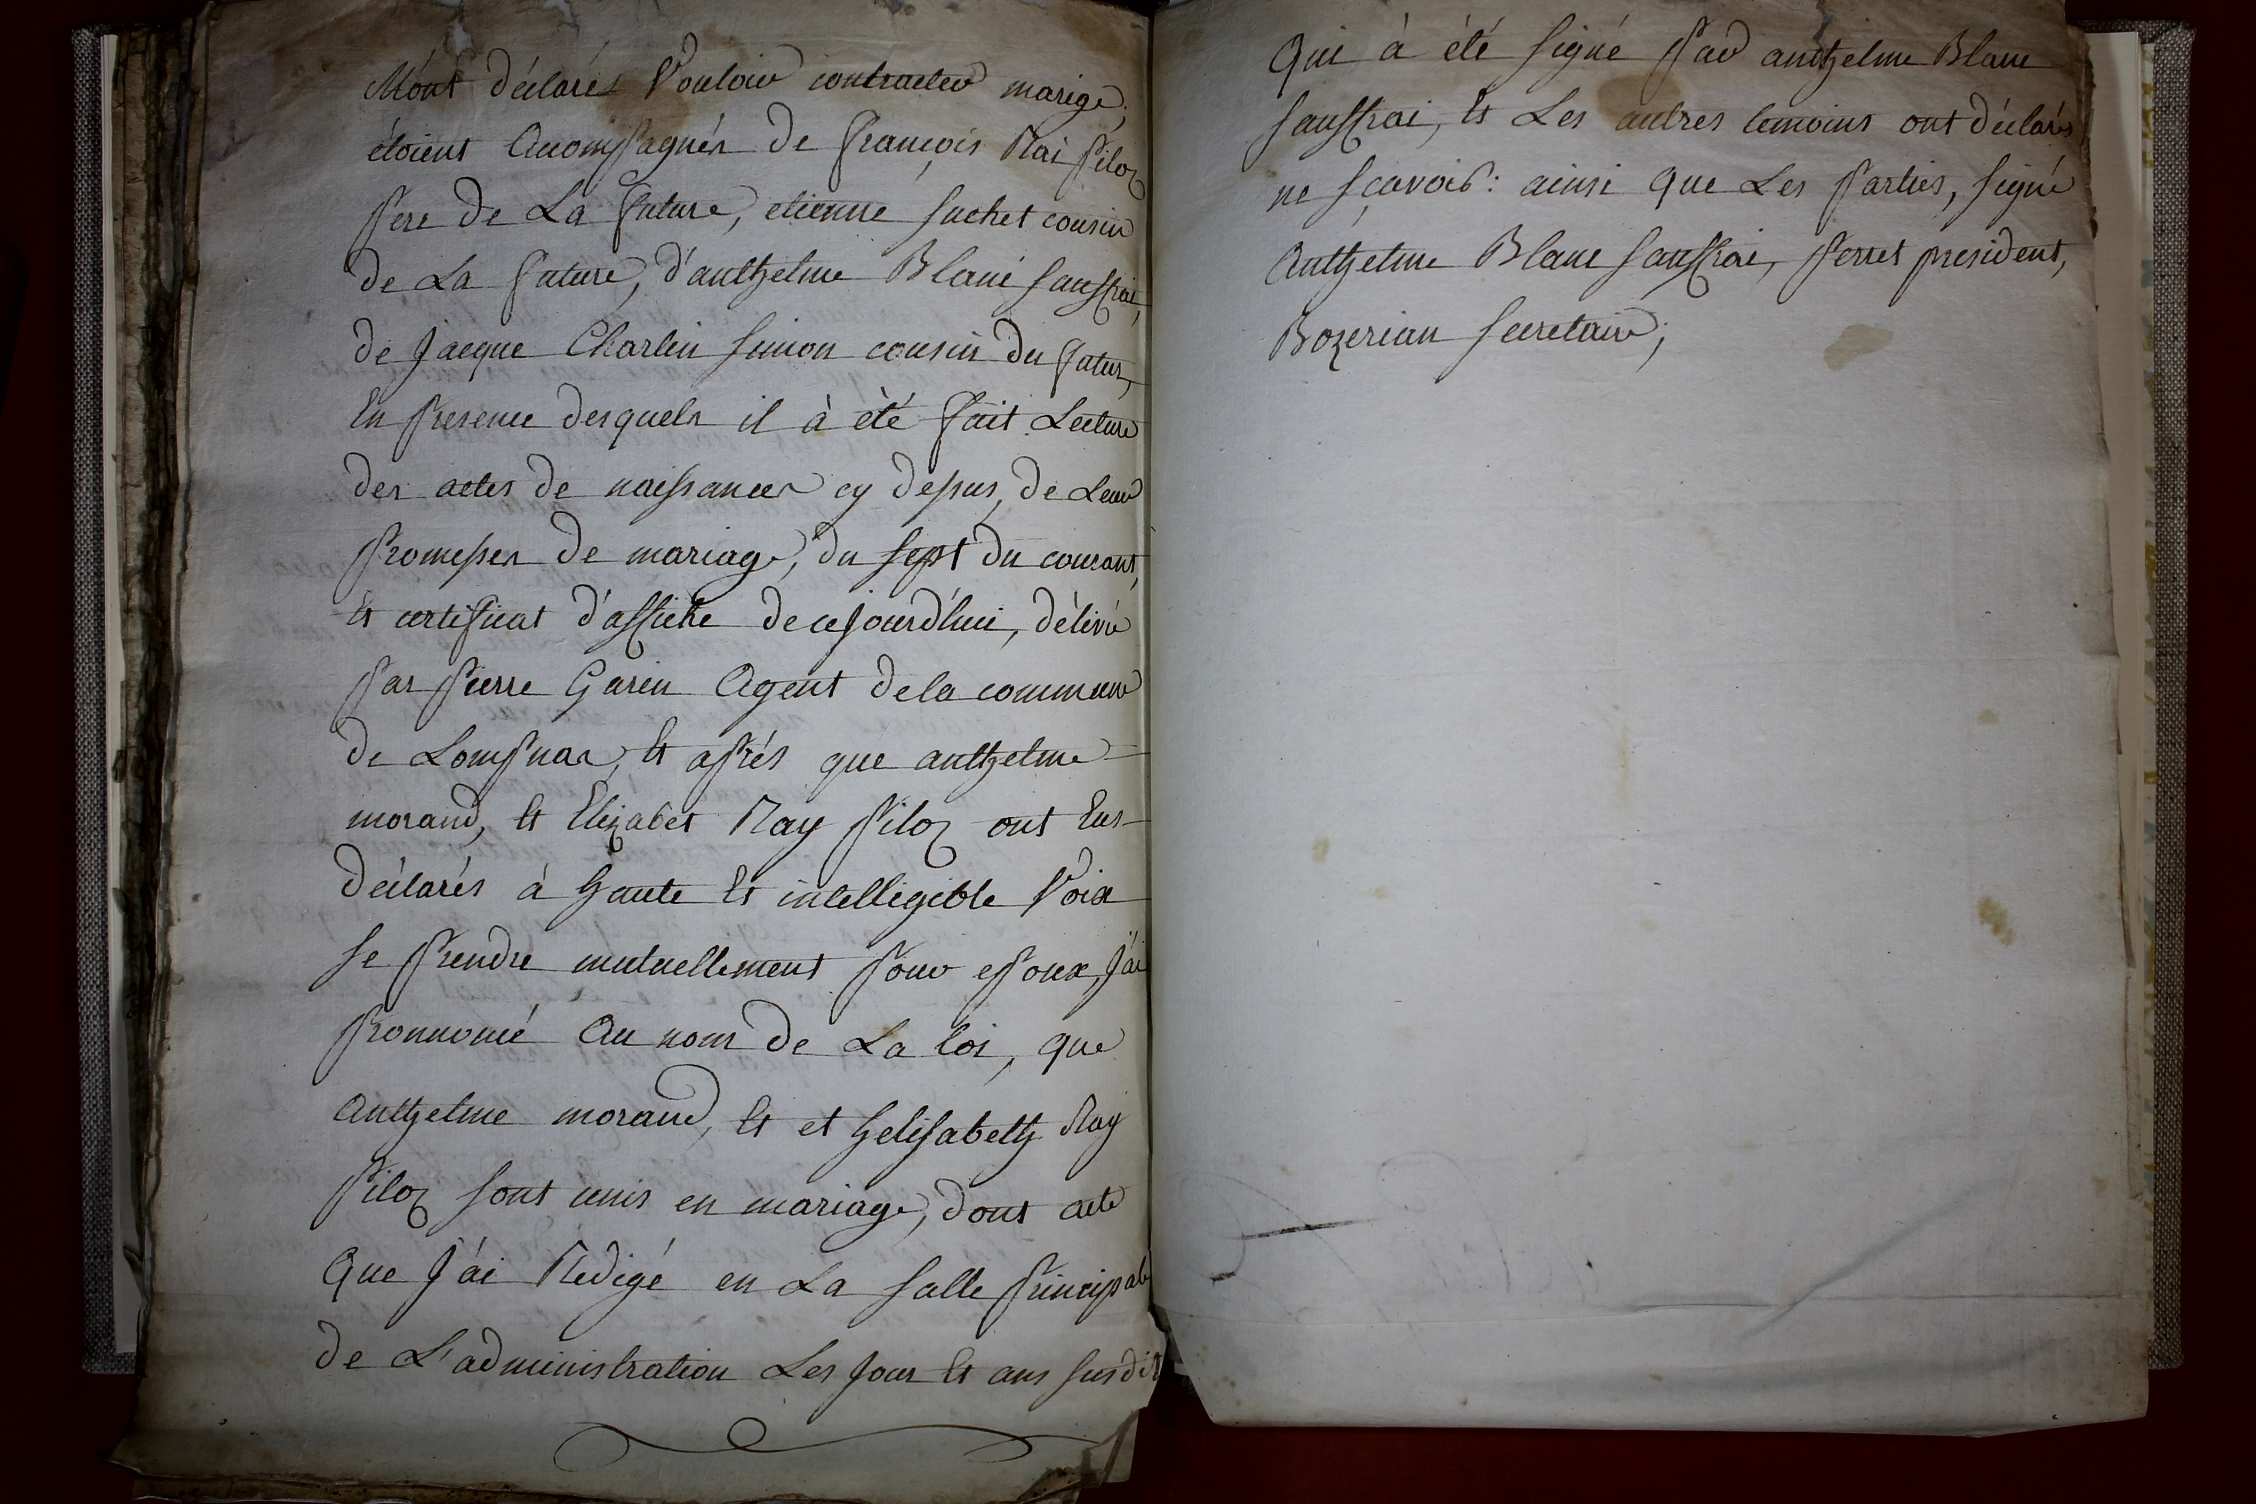 M'ont déclarés Vouloir contracter marige;
étoient Acompagnés de françois Rai Piloz
Pere de La future, etienne suchet cousin
de La future, d'anthelme Blanc sauffrai,
de Jacque Charlin simon cousin du futur,
En Presence desquels il à été fait Lecture
des actes de naissances cy dessus, de Leur
Promesses de mariage, du sept du courant,
Et certificat d'affiche de cejourd'hui, délivré
Par Pierre Garin Agent de la commune
de Lompnas, Et aprés que anthelme
morand, Et Elizabet Ray Piloz ont Eus
déclarés à haute Et intelligible Voix
se Prendre mutuellement Pour epoux, J'ai
Pronnoncé Au nom de La loi, que
Anthelme morand, Et et helisabeth Ray
Piloz sont unis en mariage, dont acte
Que J'ai Redigé en La salle Principale
de L'administration Les Jour Et ans susdit
Qui à été signé Par anthelme Blanc
sauffrai, Et Les autres temoins ont déclarés
ne sçavoir: ainsi Que Les Parties, signé
Anthelme Blanc sauffrai, Perret president,
Bozerian secretaire;